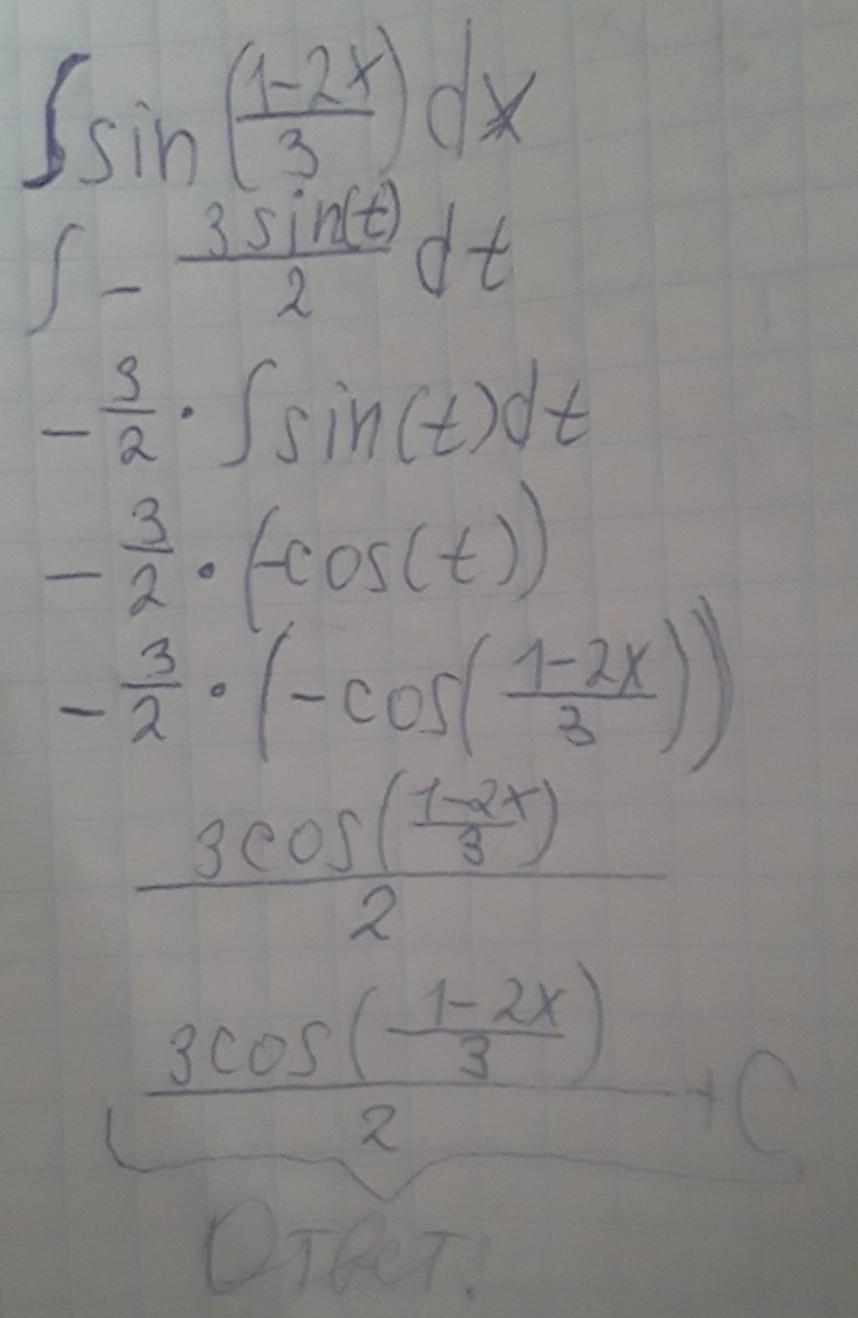 ∫ sin((1-2x)/3) dx
∫ - (3 sin(t))/2 dt
- 3/2 · ∫ sin(t) dt
- 3/2 · (-cos(t))
- 3/2 · (-cos((1-2x)/3))
(3cos((1-2x)/3))/2
(3cos((1-2x)/3))/2 + C
Ответ.